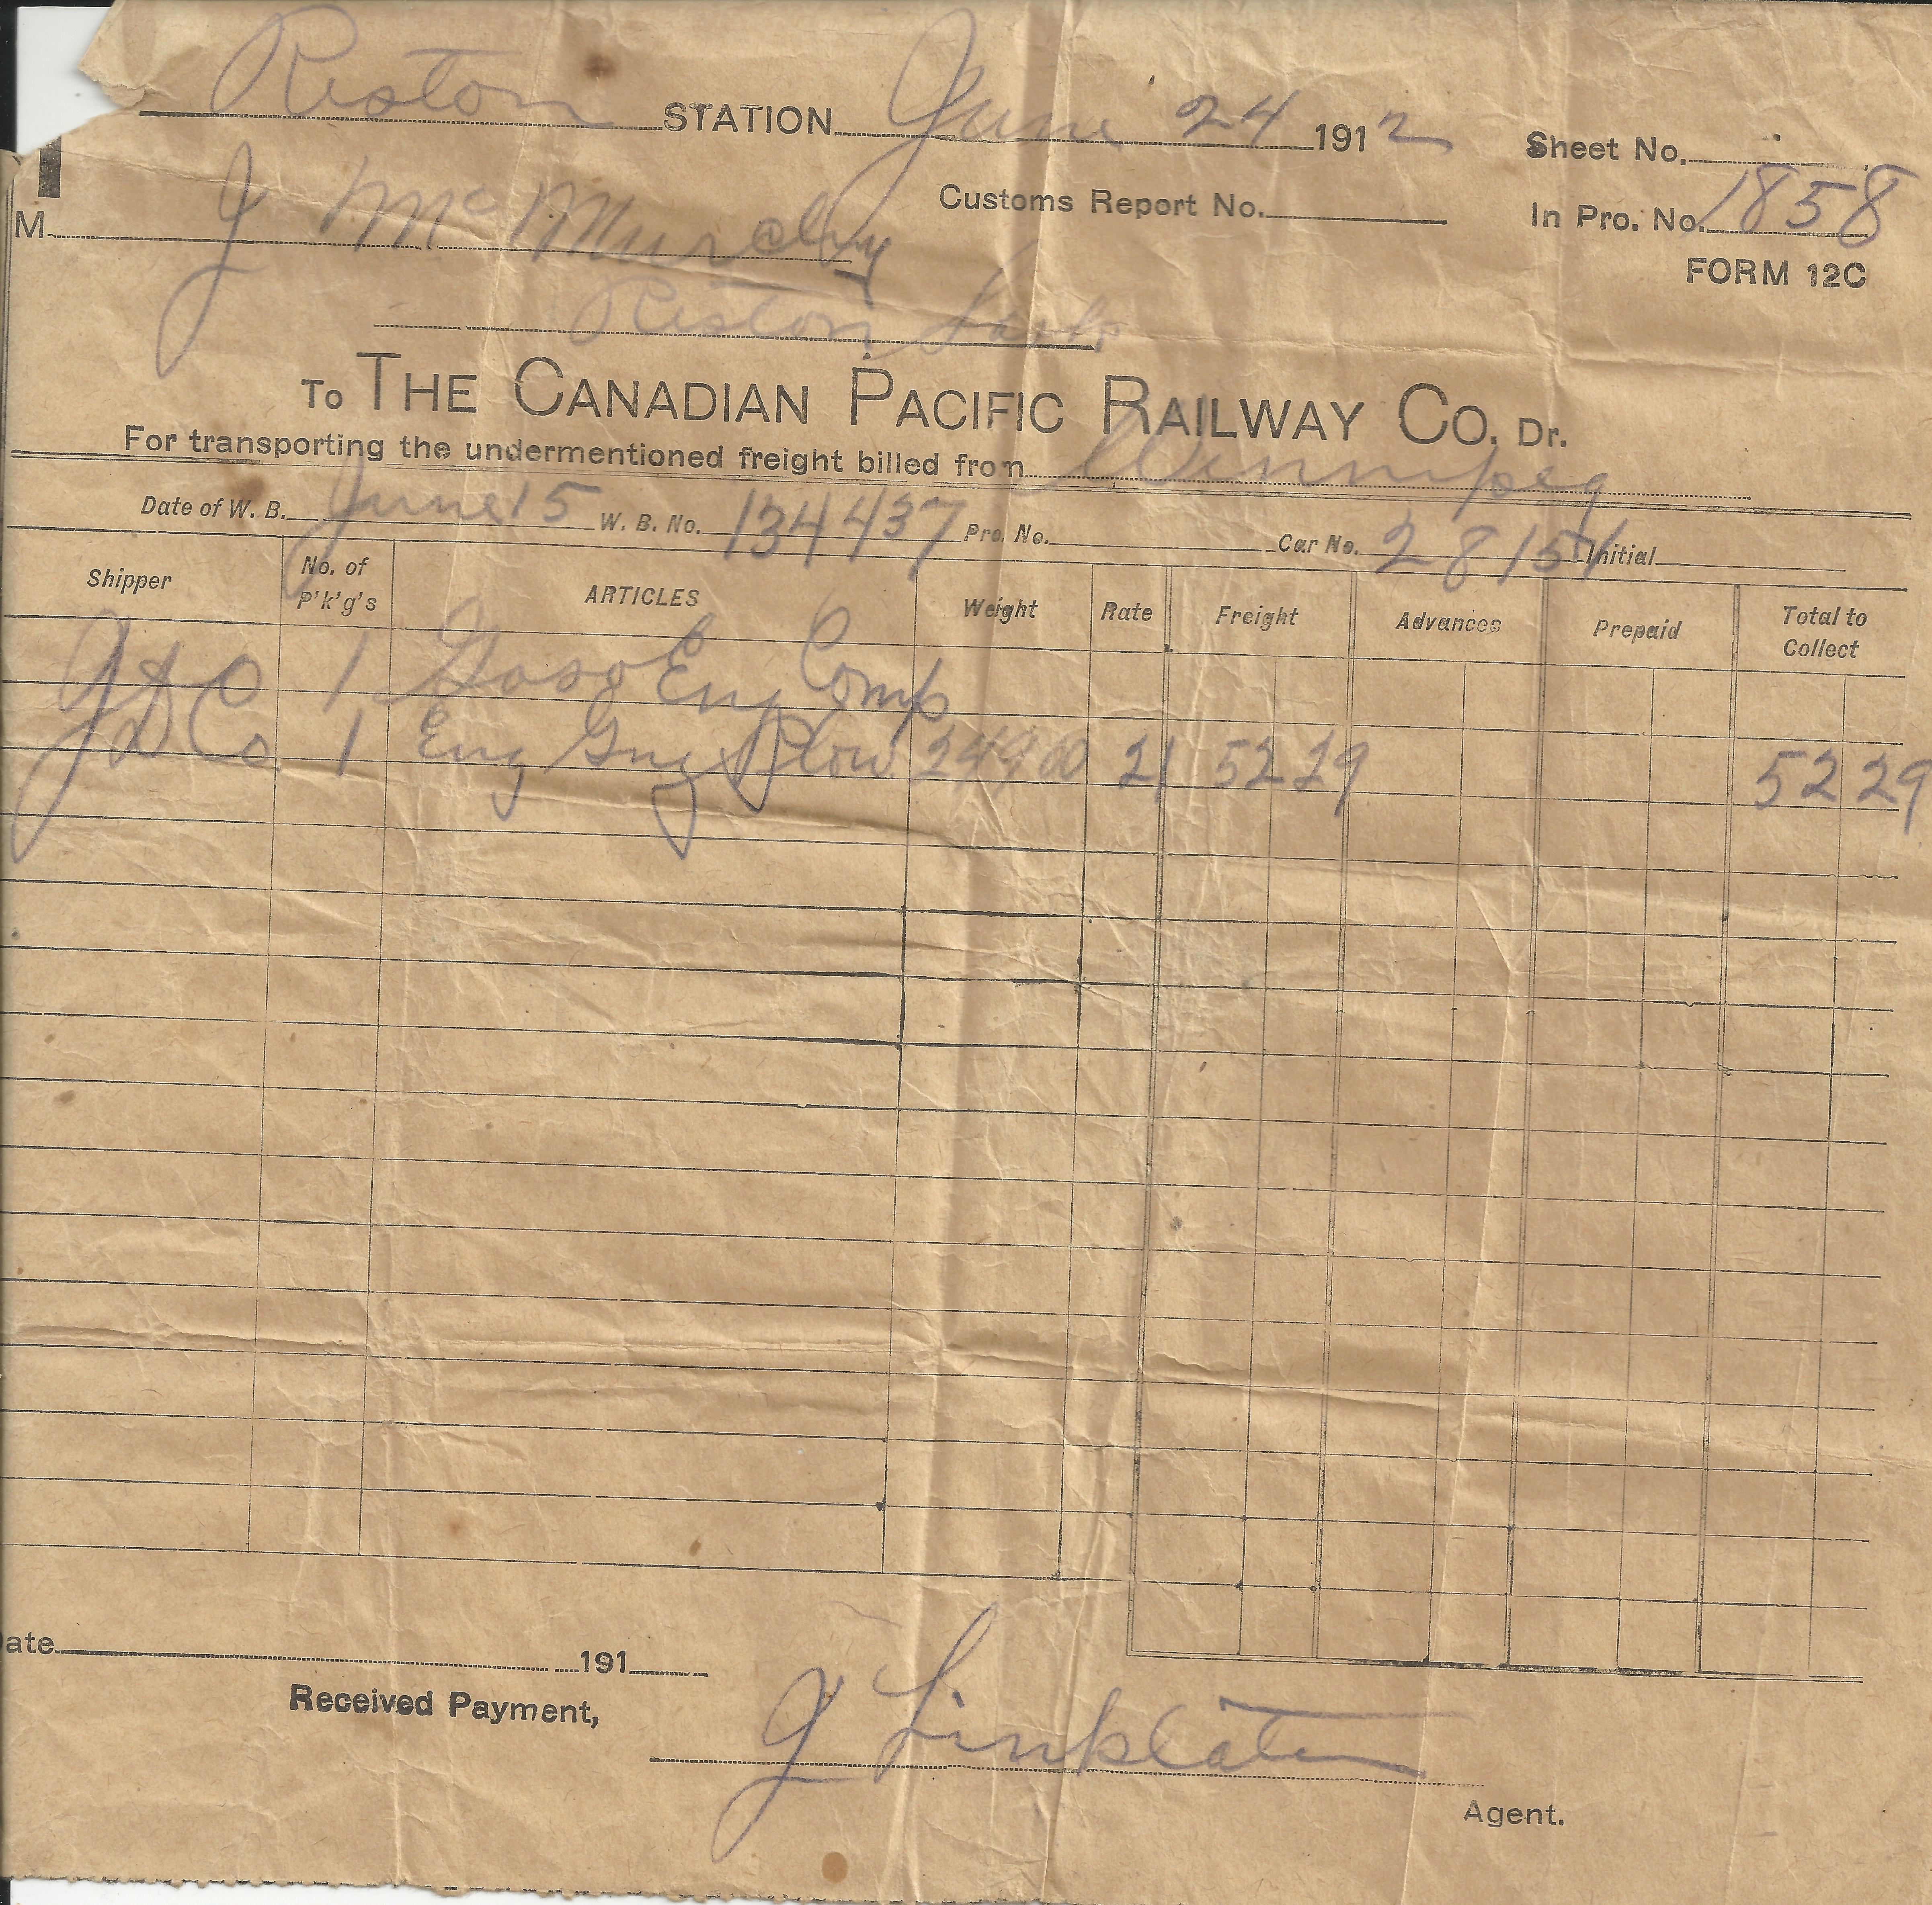 Reston STATION June 24 1912
Sheet No.
Customs Report No.
In Pro. No. 1858
M J McMurchy
FORM 12C
Reston
To THE CANADIAN PACIFIC RAILWAY CO. Dr.
For transporting the undermentioned freight billed from Winnipeg
Date of W. B. June 15 W. B. No. 134437 Pro. No. Car No. 28151 Initial
Shipper No. of P'k'g's ARTICLES Weight Rate Freight Advances Prepaid Total to Collect
J D Co 1 Gaso Eng Comp
J D Co 1 Eng Gng Plow 24900 21 52 29 52 29
ate 191
Received Payment,
J Linklater
Agent.